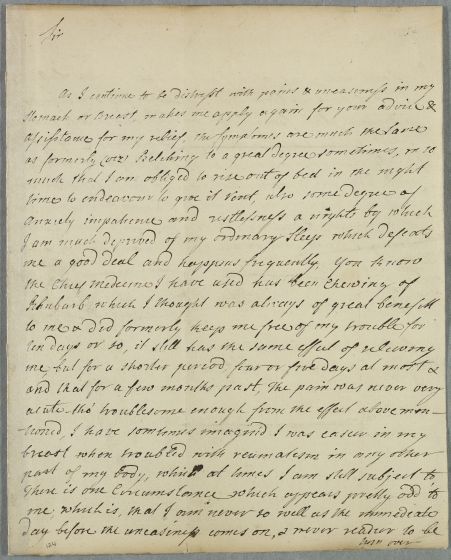 Sir
As I continue to be distrest with pains & uneasiness in my
stomach or breast makes me apply again for your advice &
assistance for my relief, the symptomes are much the same
as formerly (viz) Belching to a great degree sometimes, in so
much that I am obliged to rise out of bed in the night
time to endeavour to give it vent, also some degree of
Anxiety impatience and restlesness a nights by which
I am much deprived of my ordinary Sleep which defeats
me a good deal and happens frequently. You know
the Chief Medecine I have used has been Chewing of
Rhubarb which I thought was always of great benefitt
to me & did formerly keep me free of my trouble for
Ten days or so, it still has the same effect of releiving
me but for a shorter period, four or five days at most &
and that for a few months past, The pain was never very
acute tho' troublesome enough from the effect above men-
tioned, I have somtimes imagind I was easier in my
breast when troubled with reumatism in any other
part of my body, which at times I am still subject to
There is one Circumstance which appears pretty odd to
me which is, that I am never so well as the immediate
day before the uneasiness comes on, & never readier to be
turn over